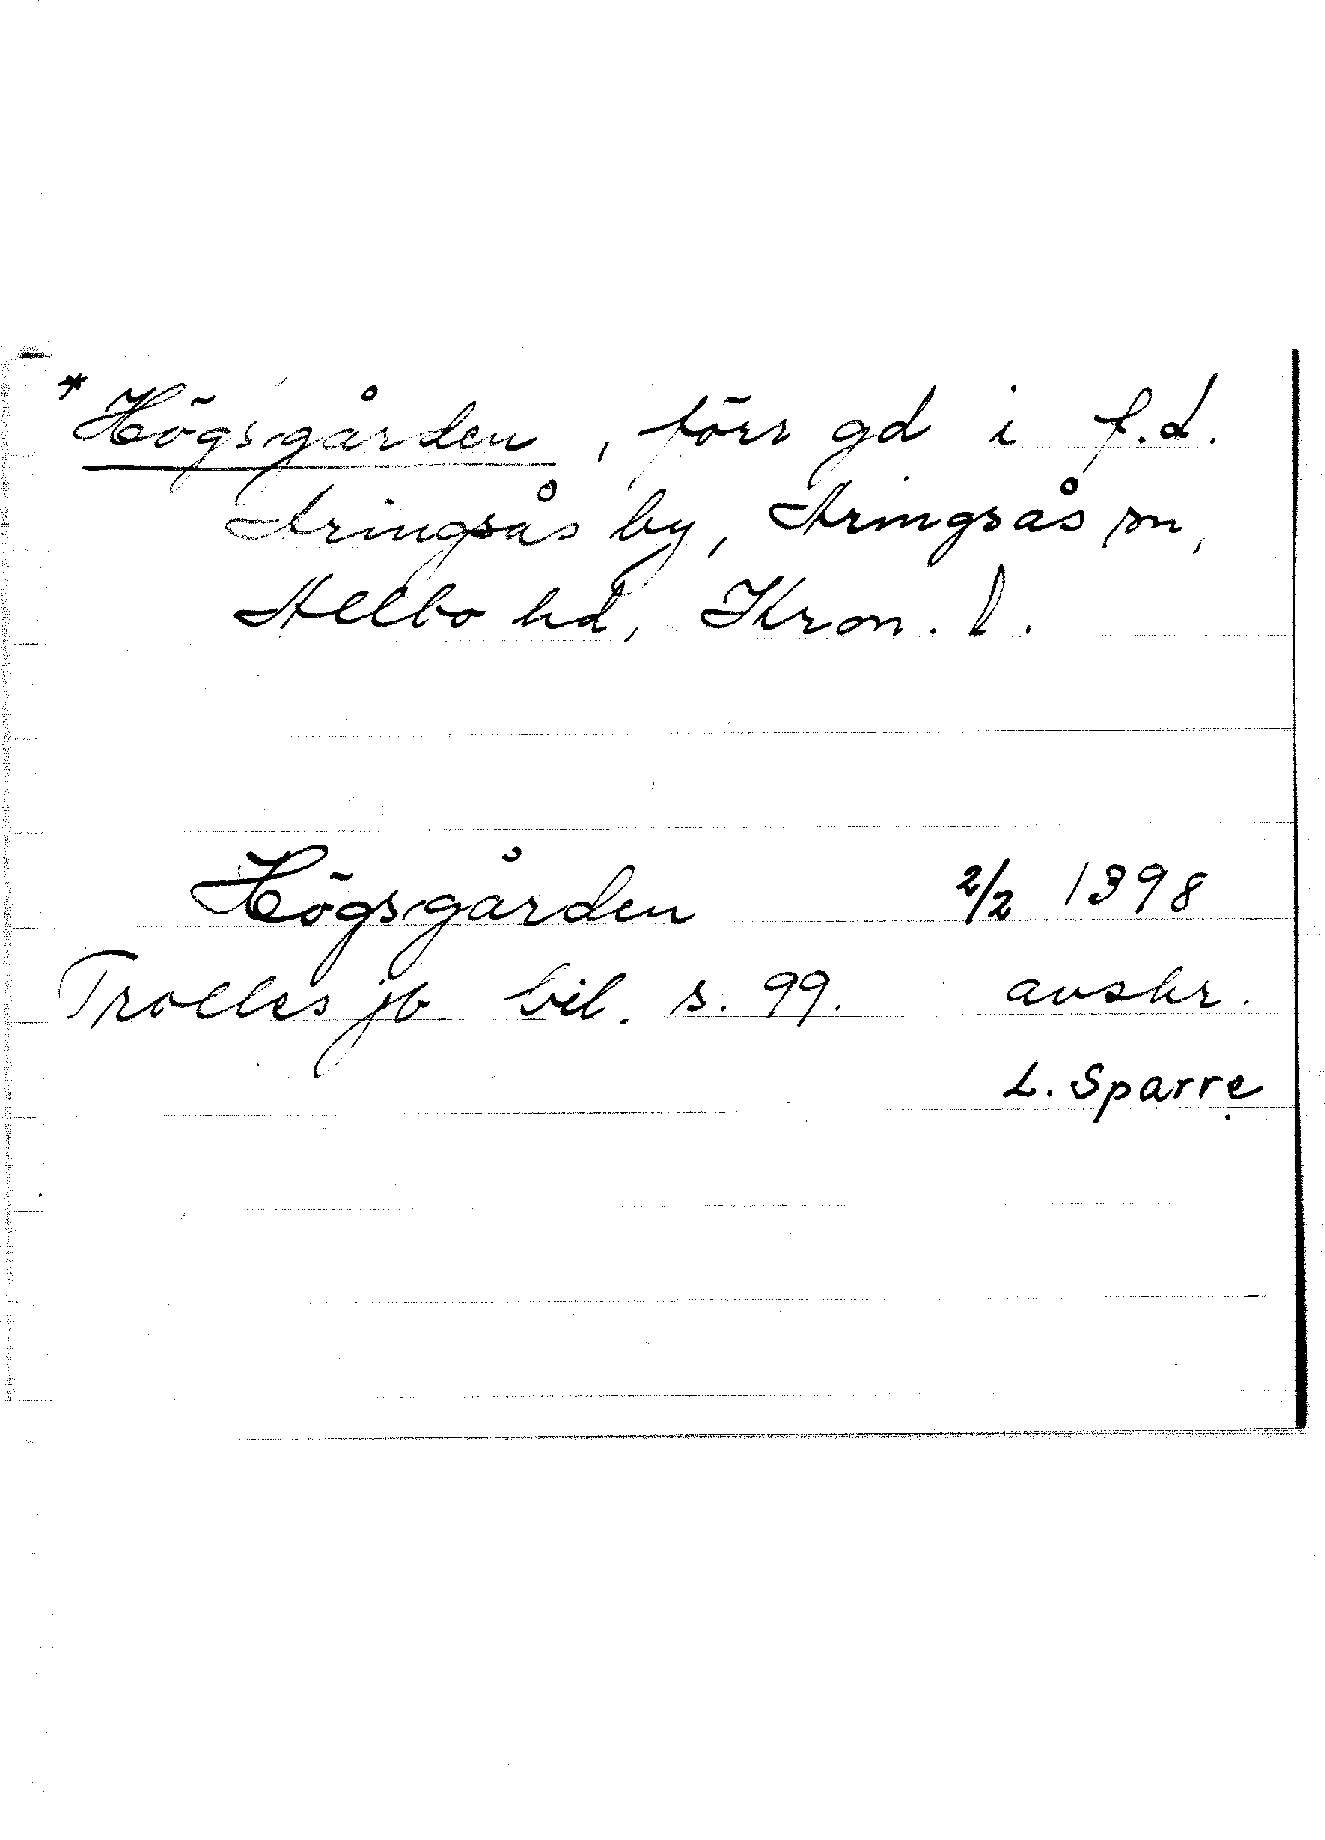 * Högsgården, förr gd i f.d.
Aringsås by, Aringsås sn,
Allbo hd, Kron. l.
Högsgården 2/2 1398
Trolles jb bil. s. 99. avskr.
L. Sparre